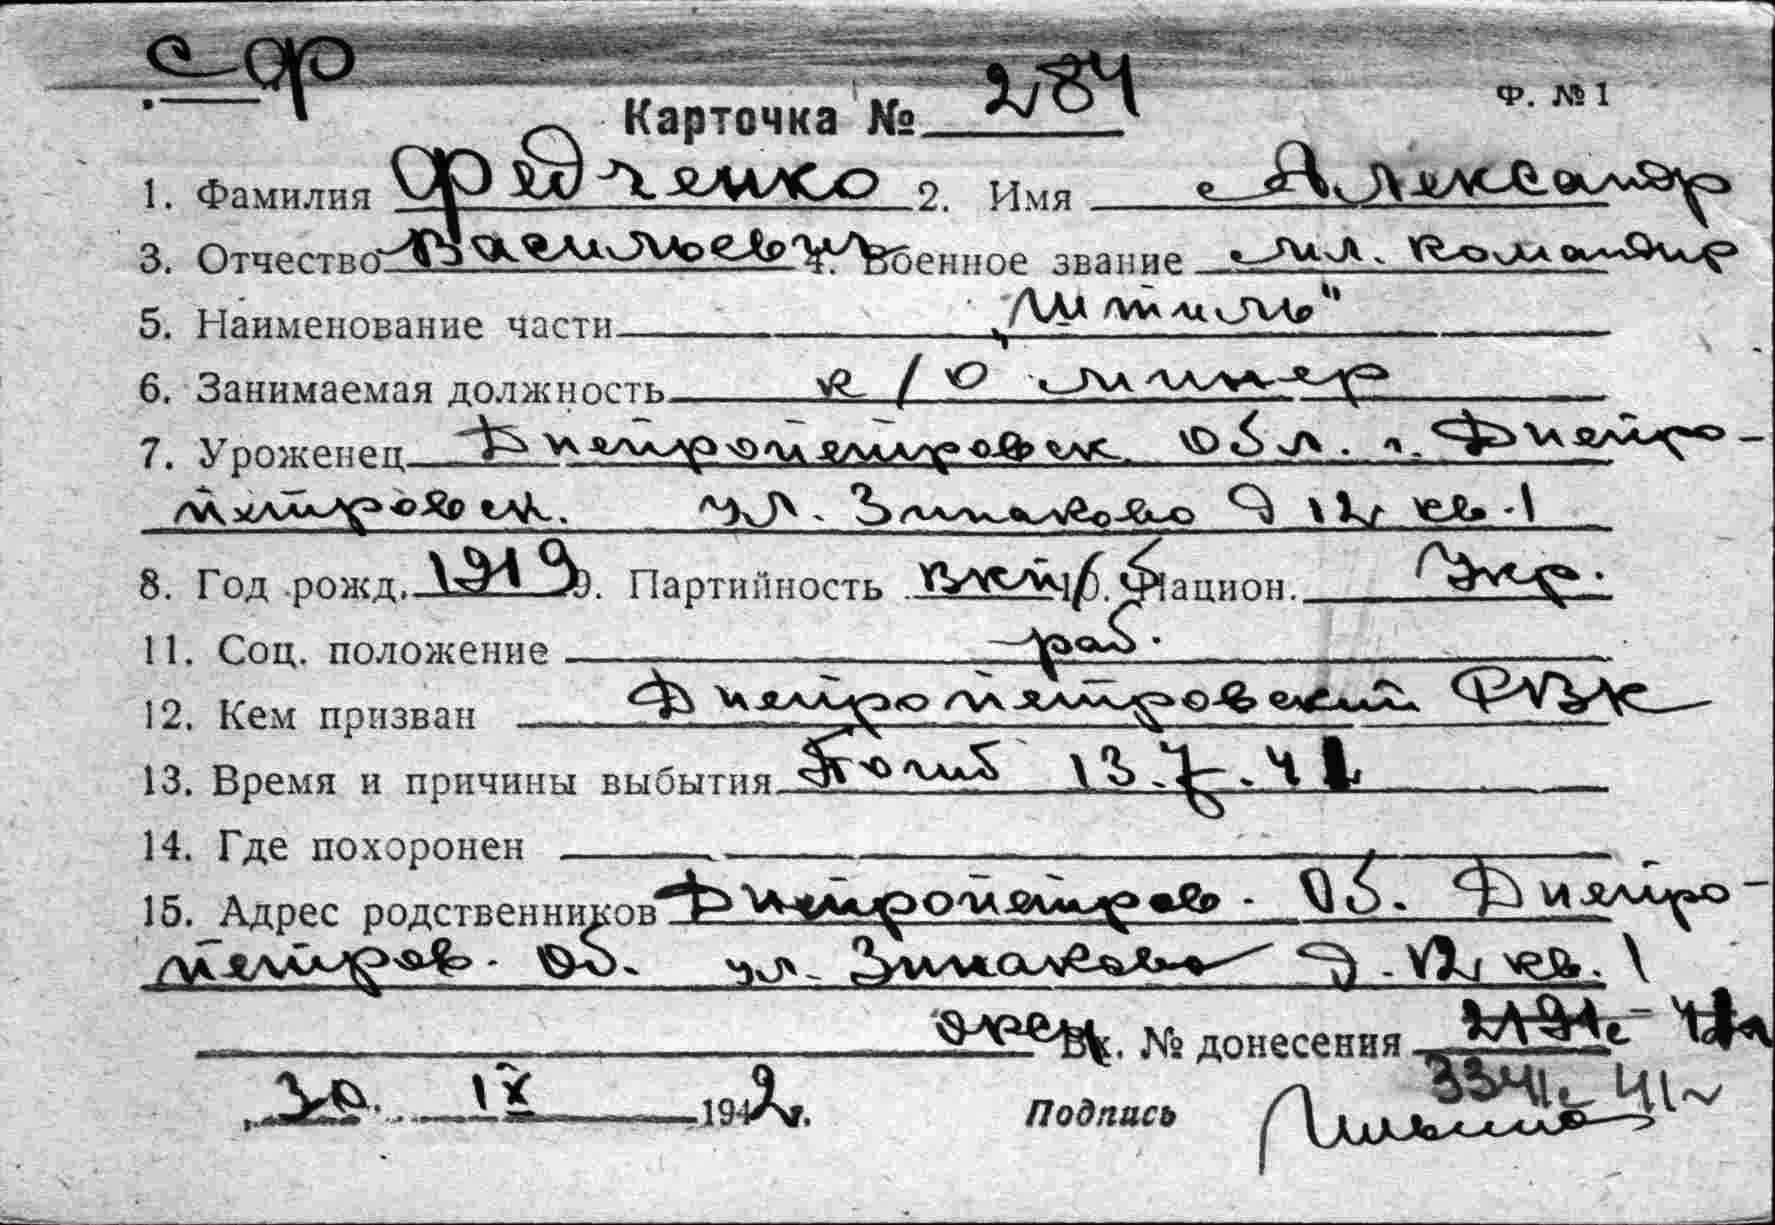 СФ
Карточка № 284 Ф. № 1
1. Фамилия Федченко 2. Имя Александр
3. Отчество Васильевич 4. Военное звание мл. командир
5. Наименование части „Штиль"
6. Занимаемая должность к/о минер
7. Уроженец Днепропетровск Обл. г. Днепро-
петровск. ул. Зинаково д 12 кв. 1
8. Год рожд. 1919 9. Партийность ВКП/б 10. Национ. Укр.
11. Соц. положение раб.
12. Кем призван Днепропетровский РВК
13. Время и причины выбытия Погиб 13.7.41
14. Где похоронен
15. Адрес родственников Днепропетров. Об. Днепро-
петров. Об. ул. Зинаково д. 12 кв. 1
Вх. № донесения 2191с
3341с 41г
30. IX 1942 г. Подпись